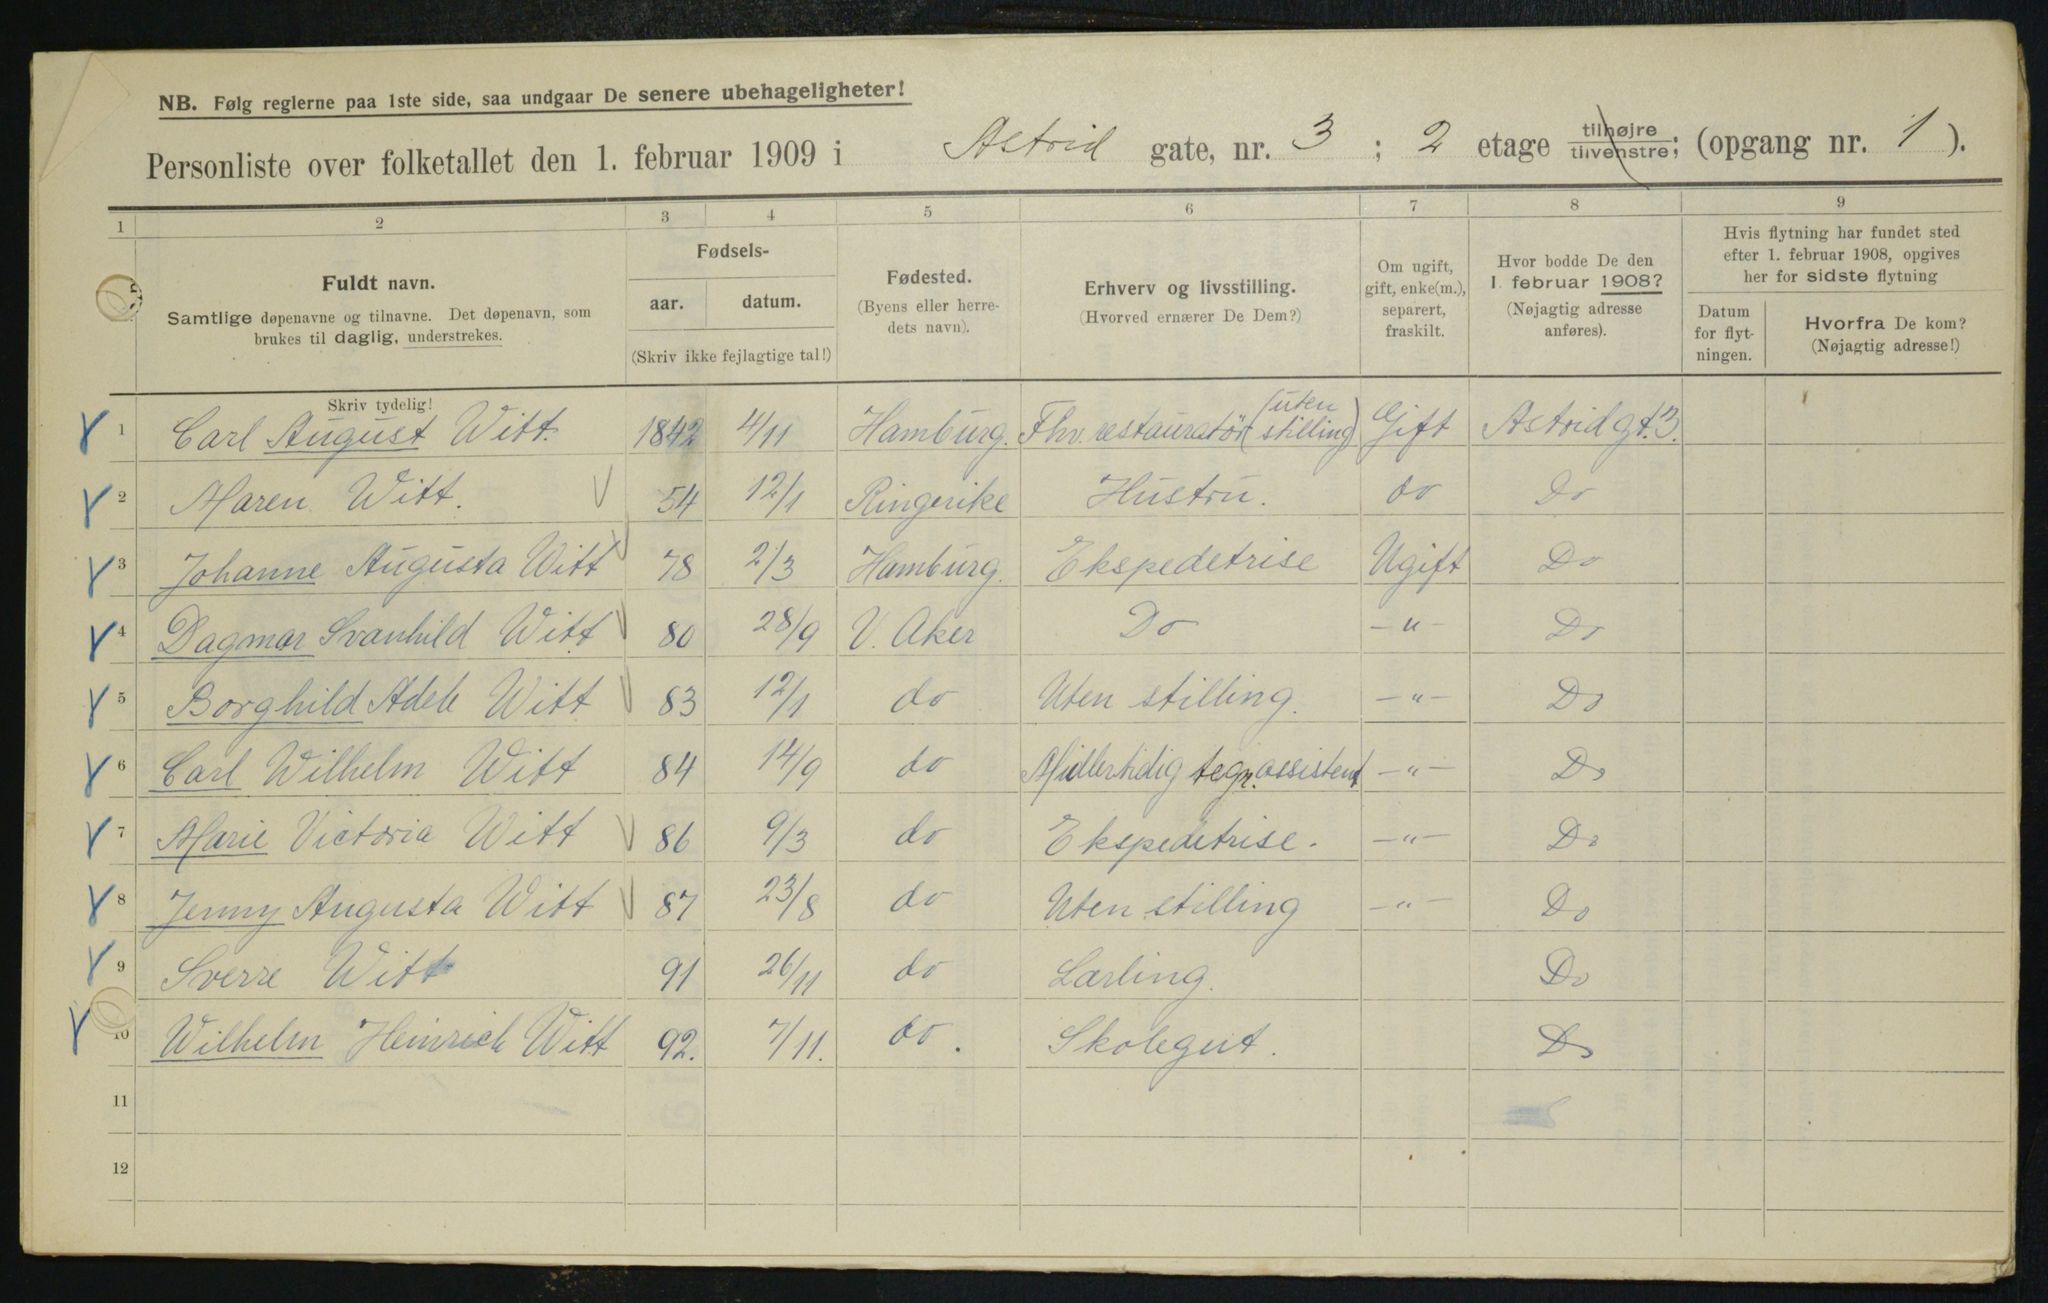 NB. Følg reglerne paa 1ste side, saa undgaar De senere ubehageligheter!
Personliste over folketallet den 1. februar 1909 i Astrid gate, nr. 3 ; 2 etage tilhøjre tilvenstre; (opgang nr. 1 ).
1 2 3 4 5 6 7 8 9
Fuldt navn.
Samtlige døpenavne og tilnavne. Det døpenavn, som
brukes til daglig, understrekes.
Skriv tydelig!
Fødsels-
aar. datum.
(Skriv ikke fejlagtige tal!)
Fødested.
(Byens eller herre-
dets navn).
Erhverv og livsstilling.
(Hvorved ernærer De Dem?)
Om ugift,
gift, enke(m.),
separert,
fraskilt.
Hvor bodde De den
1. februar 1908?
(Nøjagtig adresse
anføres).
Hvis flytning har fundet sted
efter 1. februar 1908, opgives
her for sidste flytning
Datum
for flyt-
ningen.
Hvorfra De kom?
(Nøjagtig adresse!)
1 Carl August Witt. 1842 4/11 Hamburg. Fhv. restauratør (uten stilling) Gift Astridgt. 3.
2 Maren Witt. 54 12/1 Ringerike Hustru. do Do
3 Johanne Augusta Witt 78 2/3 Hamburg. Ekspedetrise Ugift Do
4 Dagmar Svanhild Witt 80 28/9 V. Aker Do -"- Do
5 Borghild Adele Witt 83 12/1 do Uten stilling. -"- Do
6 Carl Wilhelm Witt 84 14/9 do Midlertidig tegn.assistent -"- Do
7 Marie Victoria Witt 86 9/3 do Ekspedetrise. -"- Do
8 Jenny Augusta Witt 87 23/8 do Uten stilling -"- Do
9 Sverre Witt 91 26/11 do Lærling. Do
10 Wilhelm Heinrich Witt 92. 7/11. do. Skolegut. Do
11
12